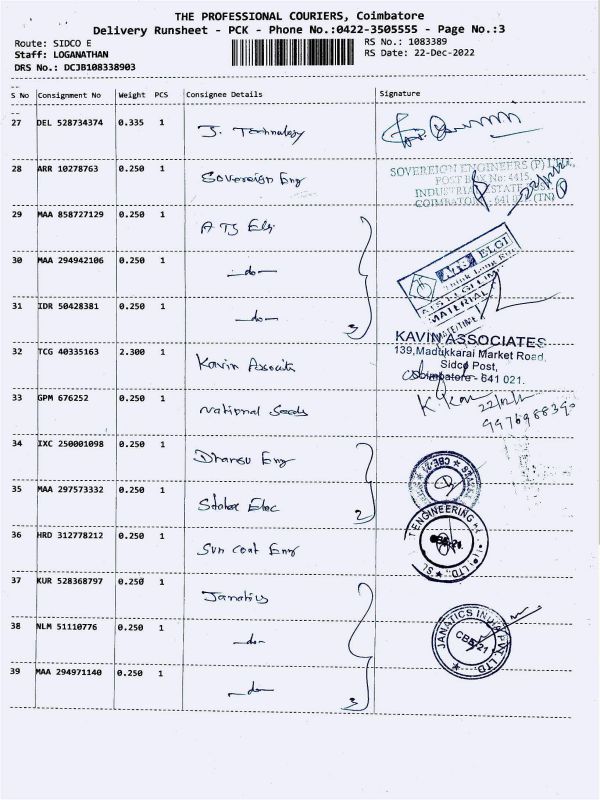 THE PROFESSIONAL COURIERS, Coimbatore
Delivery Runsheet - PCK - Phone No.:0422-3505555 - Page No.:3
Route: SIDCO E
RS No.: 1083389
Staff: LOGANATHAN
RS Date: 22-Dec-2022
DRS No.: DCJB108338903
S No Consignment No Weight PCS Consignee Details Signature
27 DEL 528734374 0.335 1 J. Technology
28 ARR 10278763 0.250 1 Sovereign Eng
SOVEREIGN ENGINEERS (P) LTD.,
POST BOX No: 4415,
INDUSTRIAL ESTATE POST,
COIMBATORE - 641 021. (TN)
29 MAA 858727129 0.250 1 A TS Elgi
30 MAA 294942106 0.250 1 -do-
ATS ELGI
ATS ELGI LIM
MATERIAL
31 IDR 50428381 0.250 1 -do- 3
32 TCG 40335163 2.300 1 Kavin Associate
KAVIN ASSOCIATES
139, Madukkarai Market Road,
Sidco Post,
Coimbatore - 641 021.
33 GPM 676252 0.250 1 National Seeds
22/12/22
9976988390
34 IXC 250001098 0.250 1 Dhansu Eng
CBE-21
35 MAA 297573332 0.250 1 Elec 2
36 HRD 312778212 0.250 1 Sun coat Eng
ENGINEERING
LTD.
37 KUR 528368797 0.250 1 Janatics
38 NLM 51110776 0.250 1 -do-
JANATICS INDIA PVT. LTD.
CBE-21
39 MAA 294971140 0.250 1 -do- 3